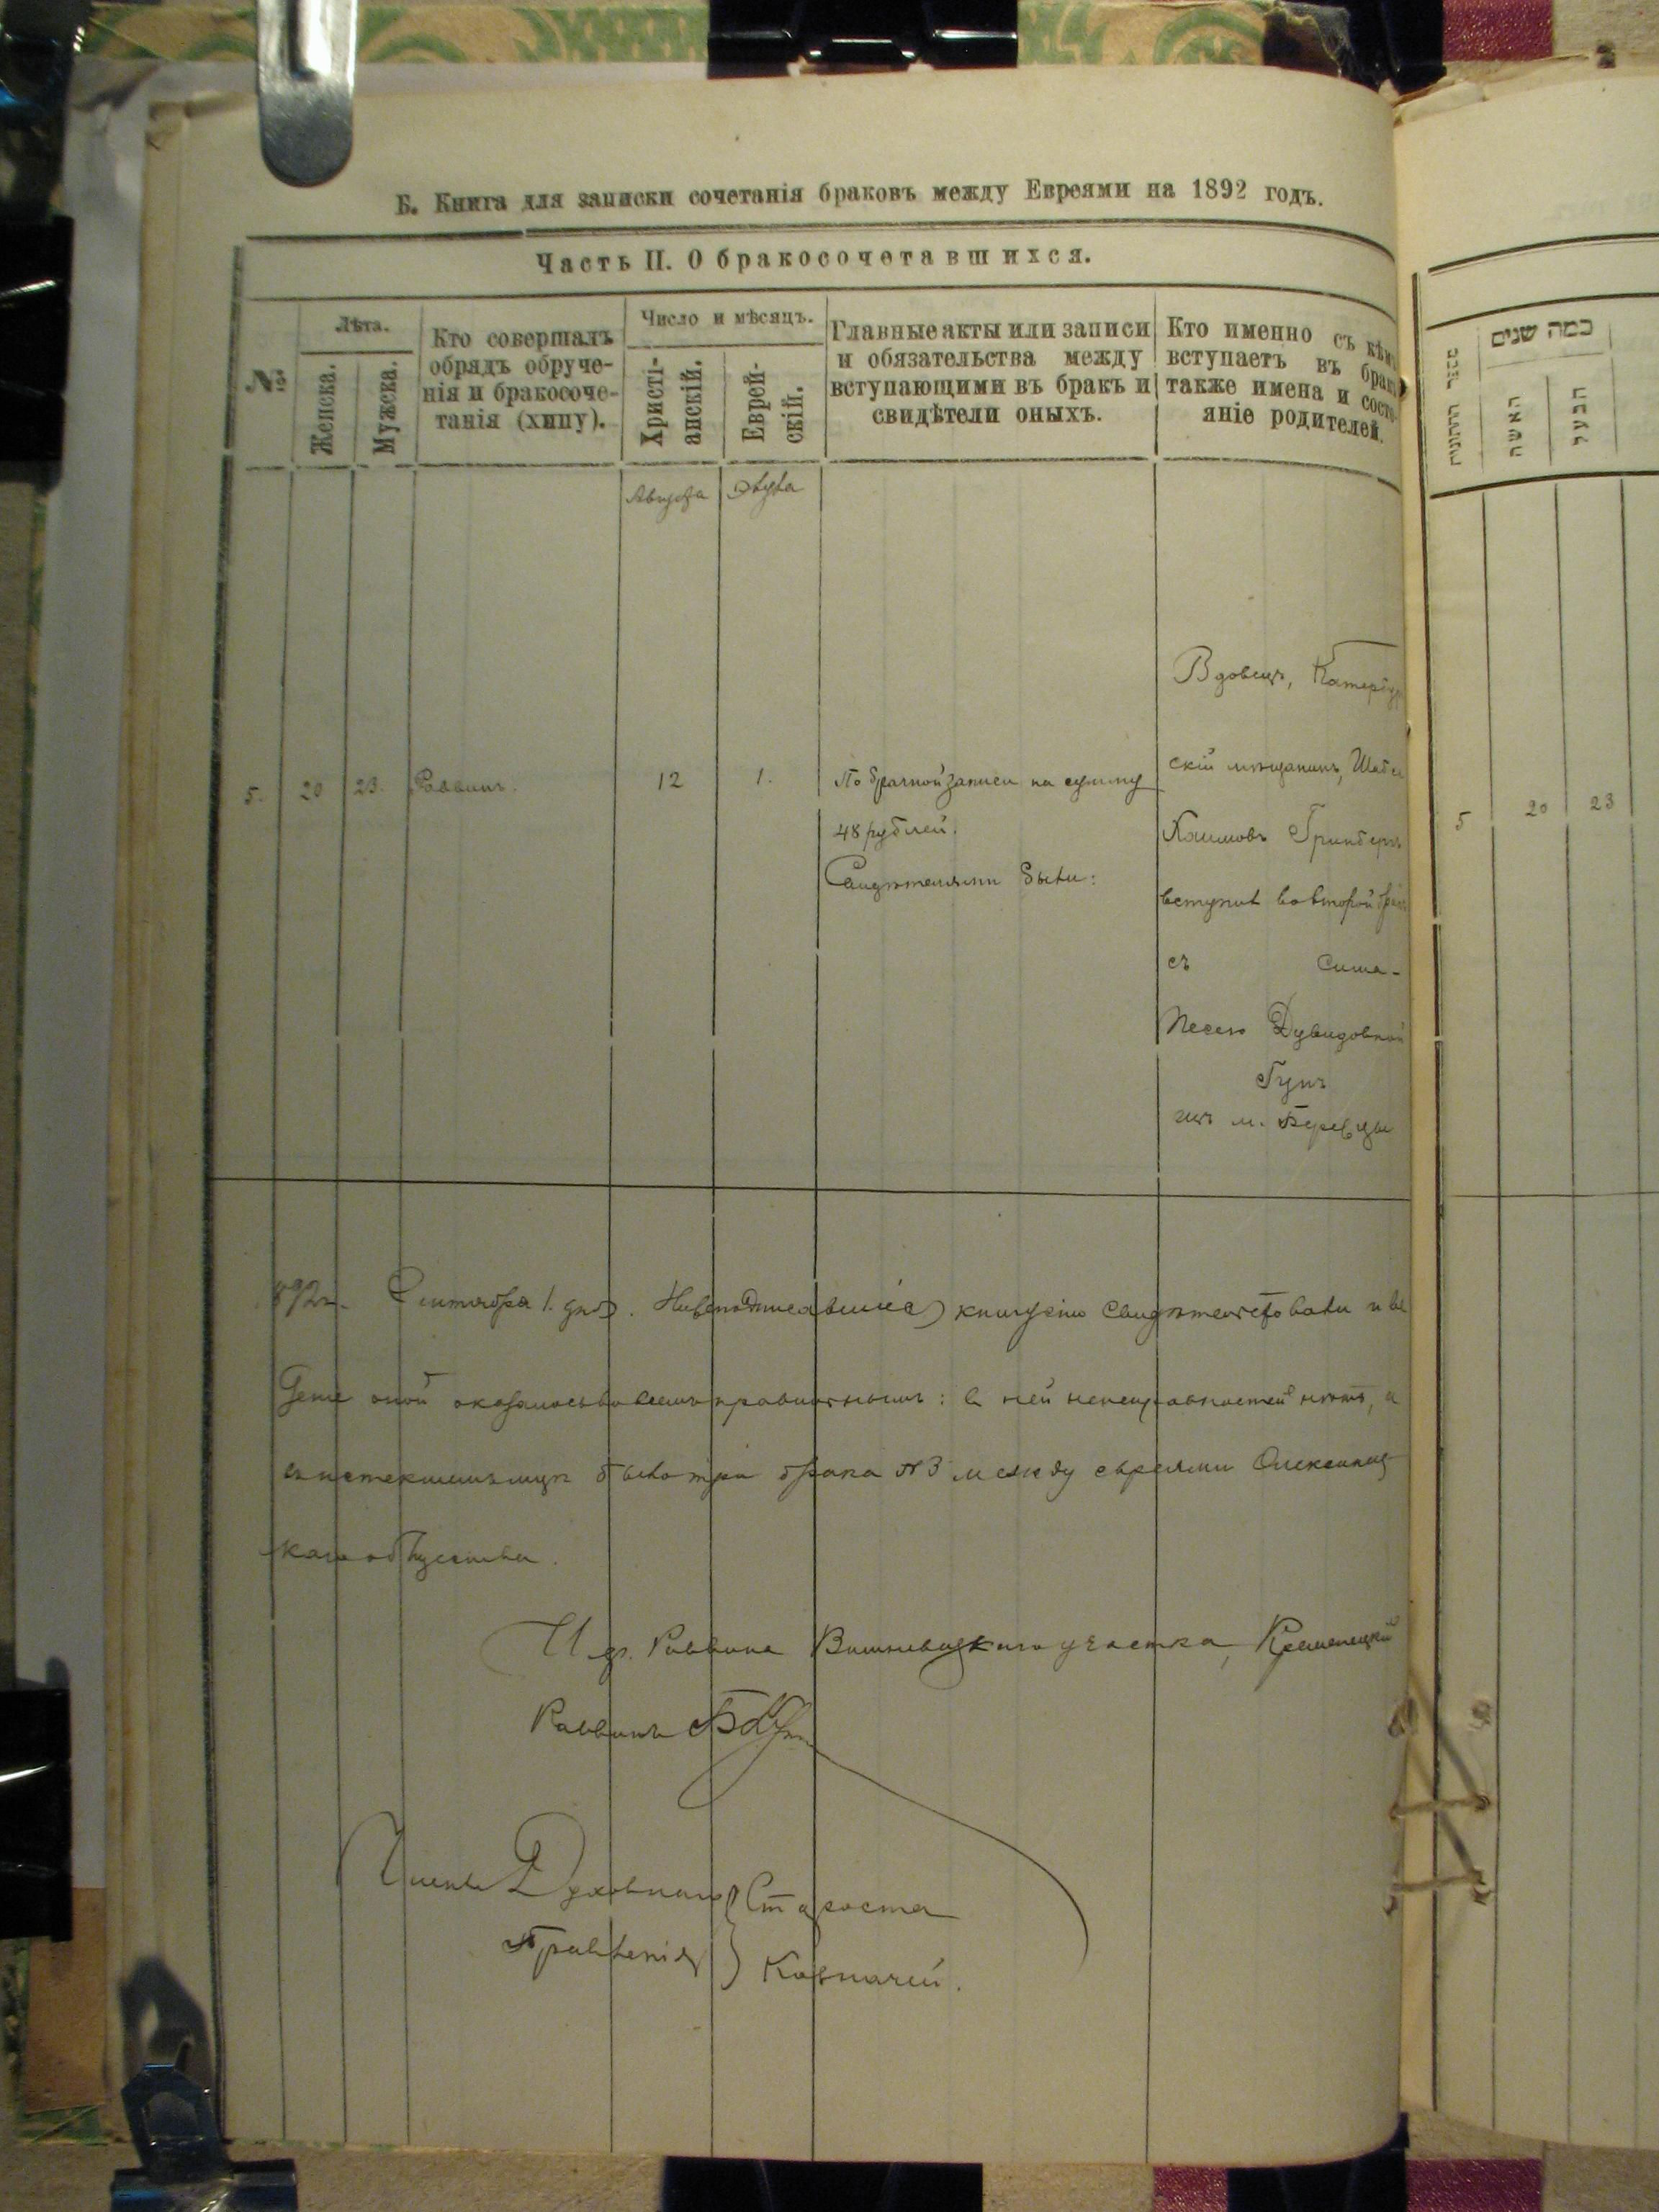 Б. Книга для записки сочетанія браковъ между Евреями на 1892 годъ.
Часть II. О бракосочетавшихся.
№
Лѣта.
Женска.
Мужска.
Кто совершалъ
обрядъ обруче-
нія и бракосоче-
танія (хипу).
Число и мѣсяцъ.
Христі-
анскій.
Еврей-
скій.
Главные акты или записи
и обязательства между
вступающими въ бракъ и
свидѣтели оныхъ.
Кто именно съ кѣмъ
вступаетъ въ бракъ
также имена и состо-
яніе родителей.
Августа
Элула
5.
20
23.
Раввинъ.
12
1.
По брачной записи на сумму
48 рублей.
Свидѣтелями были:
Вдовецъ,
скій мѣщанинъ,
Хаимовъ Гринбергъ
вступилъ во второй бракъ
съ Сима-
Песею Дувидовной
изъ м.
892 г. Сентября 1. дня. Нижеподписавшіеся книгу сію свидѣтельствовали и
оной оказалось во всемъ правильнымъ: въ ней неисправностей нѣтъ, а
въ истекшемъ м-цѣ было три брака №3 между евреями Олексинец-
каго общества.
И. д. Раввина Вишневецкаго участка, Кременецкій
Раввинъ
Члены Духовнаго
Правленія
Староста
Казначей.
מספר החתונות
כמה שנים
האשה
הבעל
5
20
23